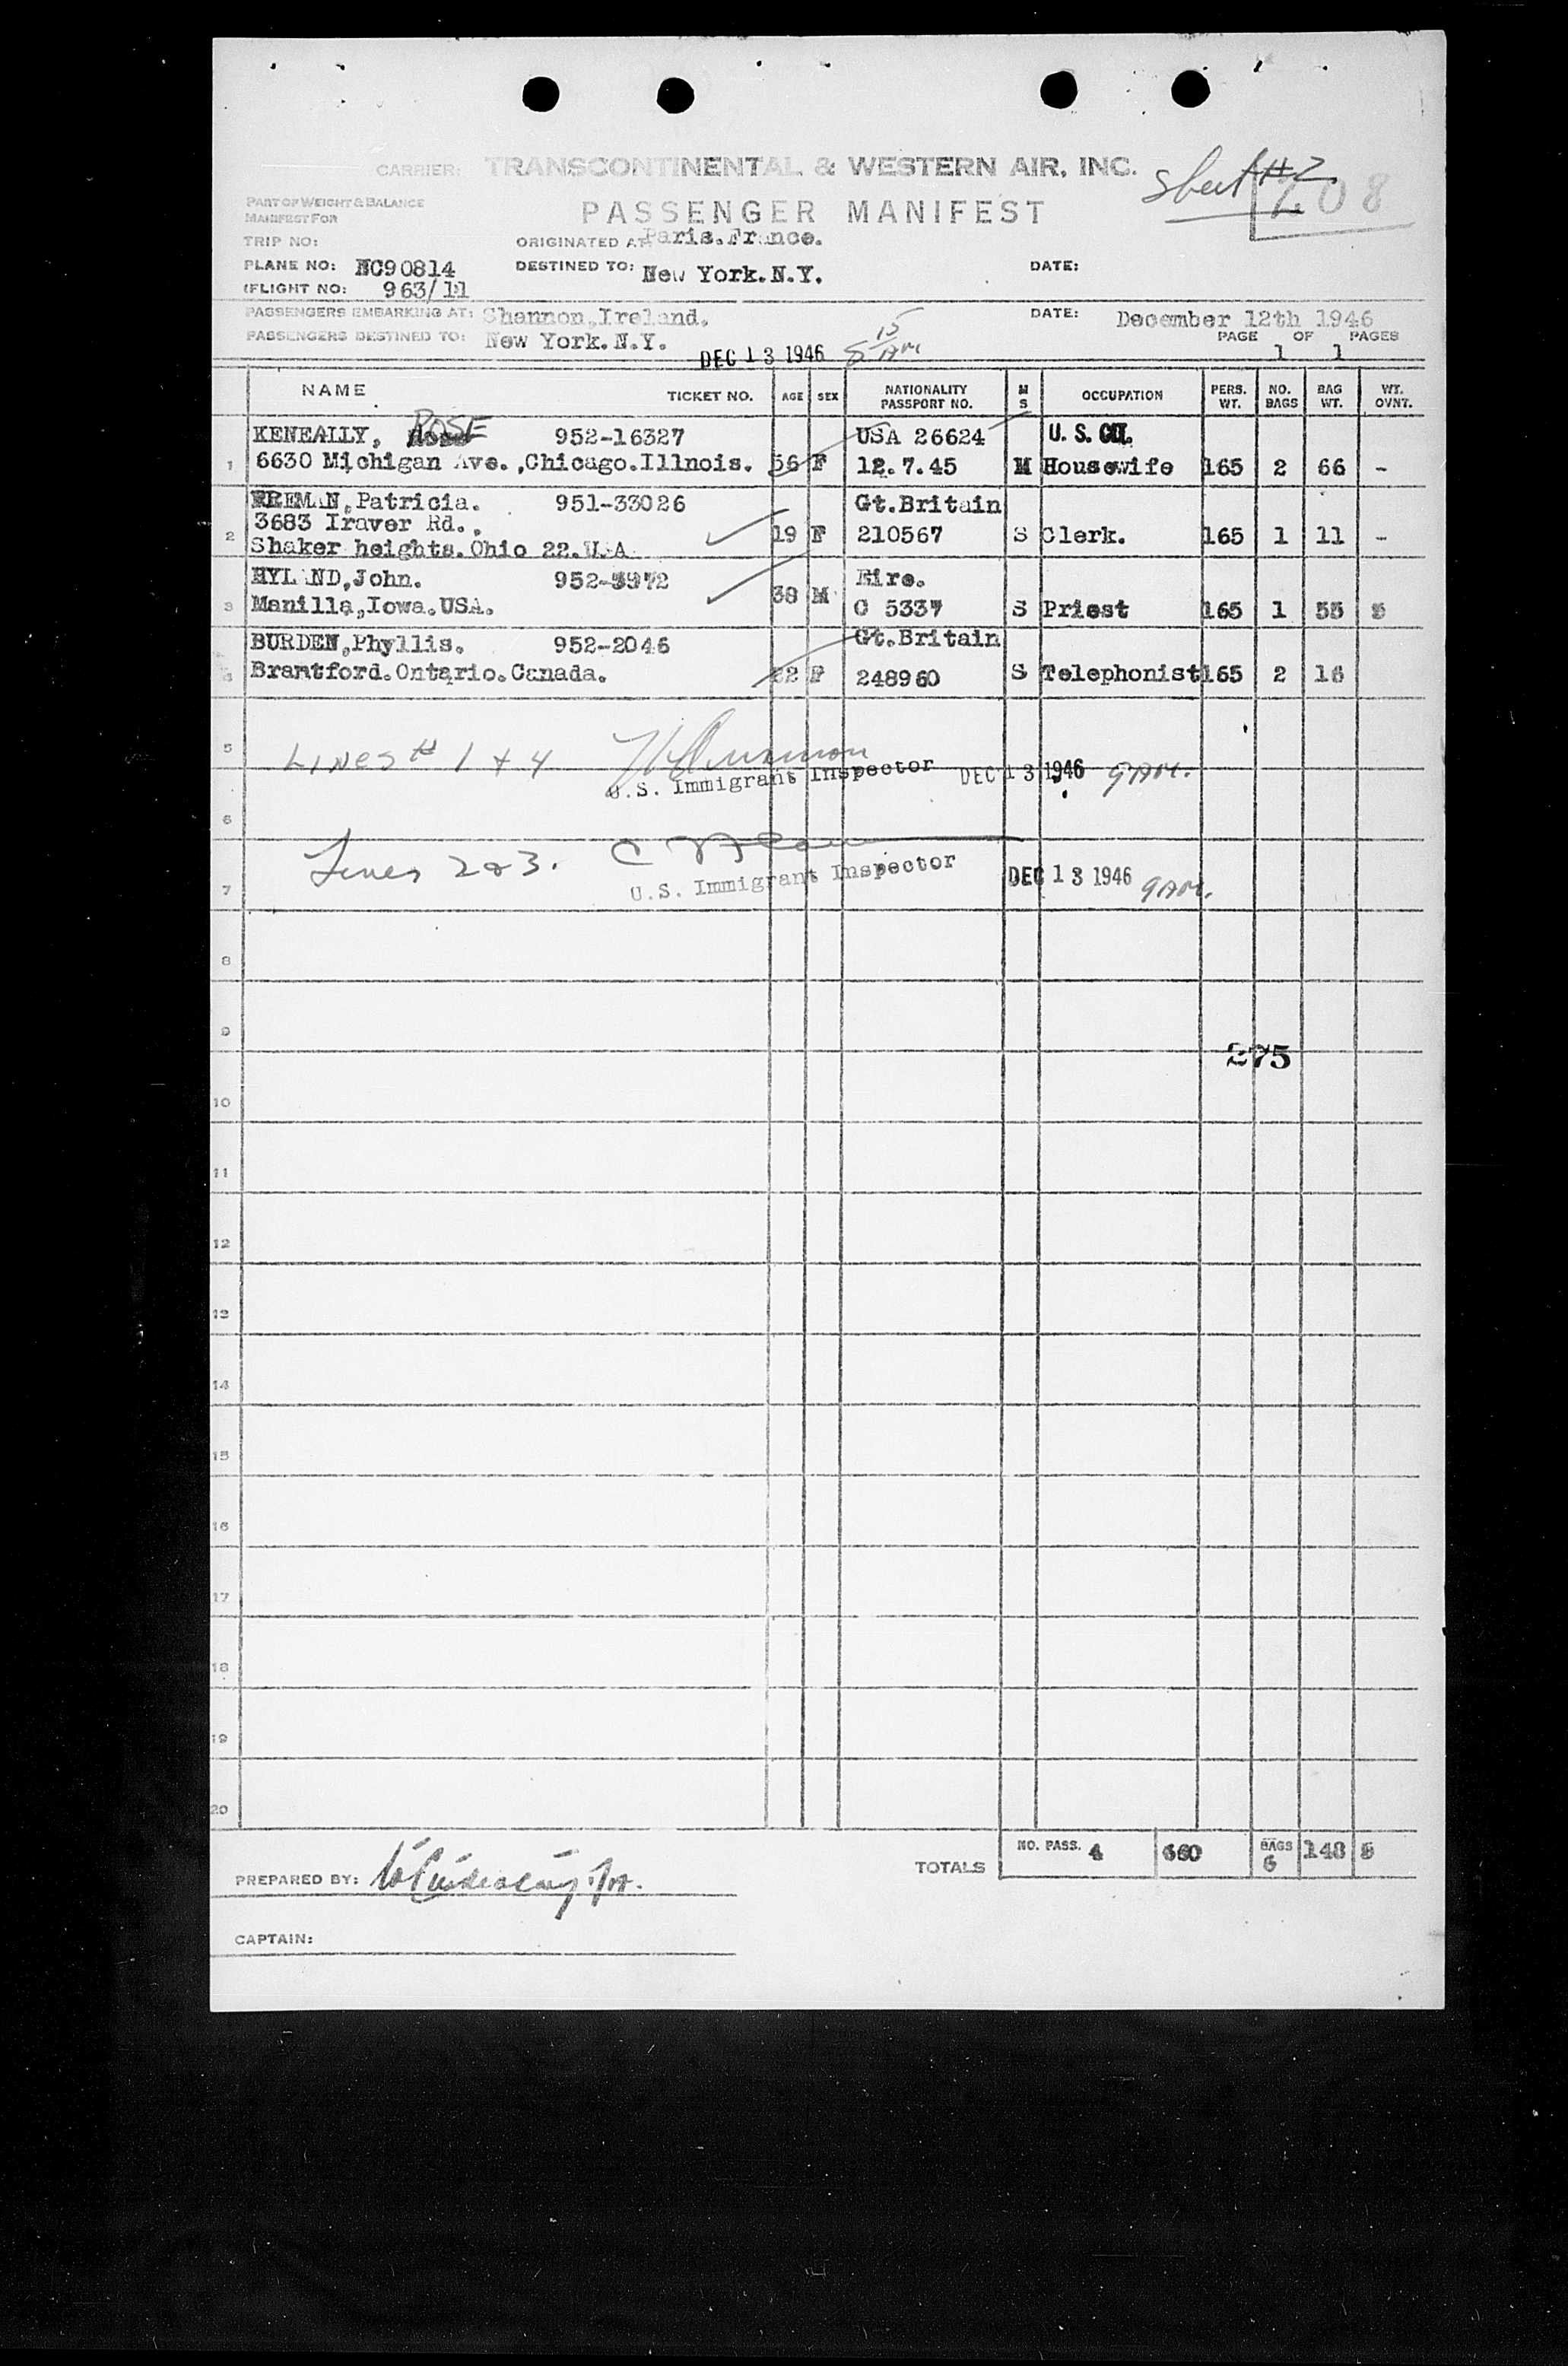 CARRIER: TRANSCONTINENTAL & WESTERN AIR, INC.
Sheet #2
208
PART OF WEIGHT & BALANCE
MANIFEST FOR
PASSENGER MANIFEST
TRIP NO:
ORIGINATED AT: Paris.France.
PLANE NO: NC90814
DESTINED TO: New York.N.Y.
DATE:
(FLIGHT NO: 963/11
PASSENGERS EMBARKING AT: Shannon,Ireland.
DATE: December 12th 1946
PASSENGERS DESTINED TO: New York.N.Y.
DEC 13 1946 8 15 AM
PAGE 1 OF 1 PAGES
NAME TICKET NO. AGE SEX NATIONALITY PASSPORT NO. M S OCCUPATION PERS. WT. NO. BAGS BAG WT. WT. OVNT.
KENEALLY, ROSE 952-16327 USA 26624 U. S. CIT.
1 6630 Michigan Ave.,Chicago.Illnois. 56 F 12.7.45 M Housewife 165 2 66 -
FREMAN,Patricia. 951-33026 Gt.Britain
3683 Traver Rd.,
2 19 F 210567 S Clerk. 165 1 11 -
Shaker heights.Ohio 22.USA
HYLAND,John. 952-3972 Eire.
3 Manilla,Iowa.USA. 38 M C 5337 S Priest 165 1 55 5
BURDEN,Phyllis. 952-2046 Gt.Britain
4 Brantford.Ontario.Canada. 22 F 248960 S Telephonist 165 2 16
5 LINES # 1 + 4
U.S. Immigrant Inspector DEC 13 1946 9 AM.
6
Lines 2 & 3.
7 U.S. Immigrant Inspector DEC 13 1946 9 AM.
8
9
275
10
11
12
13
14
15
16
17
18
19
20
TOTALS NO. PASS. 4 660 BAGS 6 148 5
PREPARED BY:
CAPTAIN: